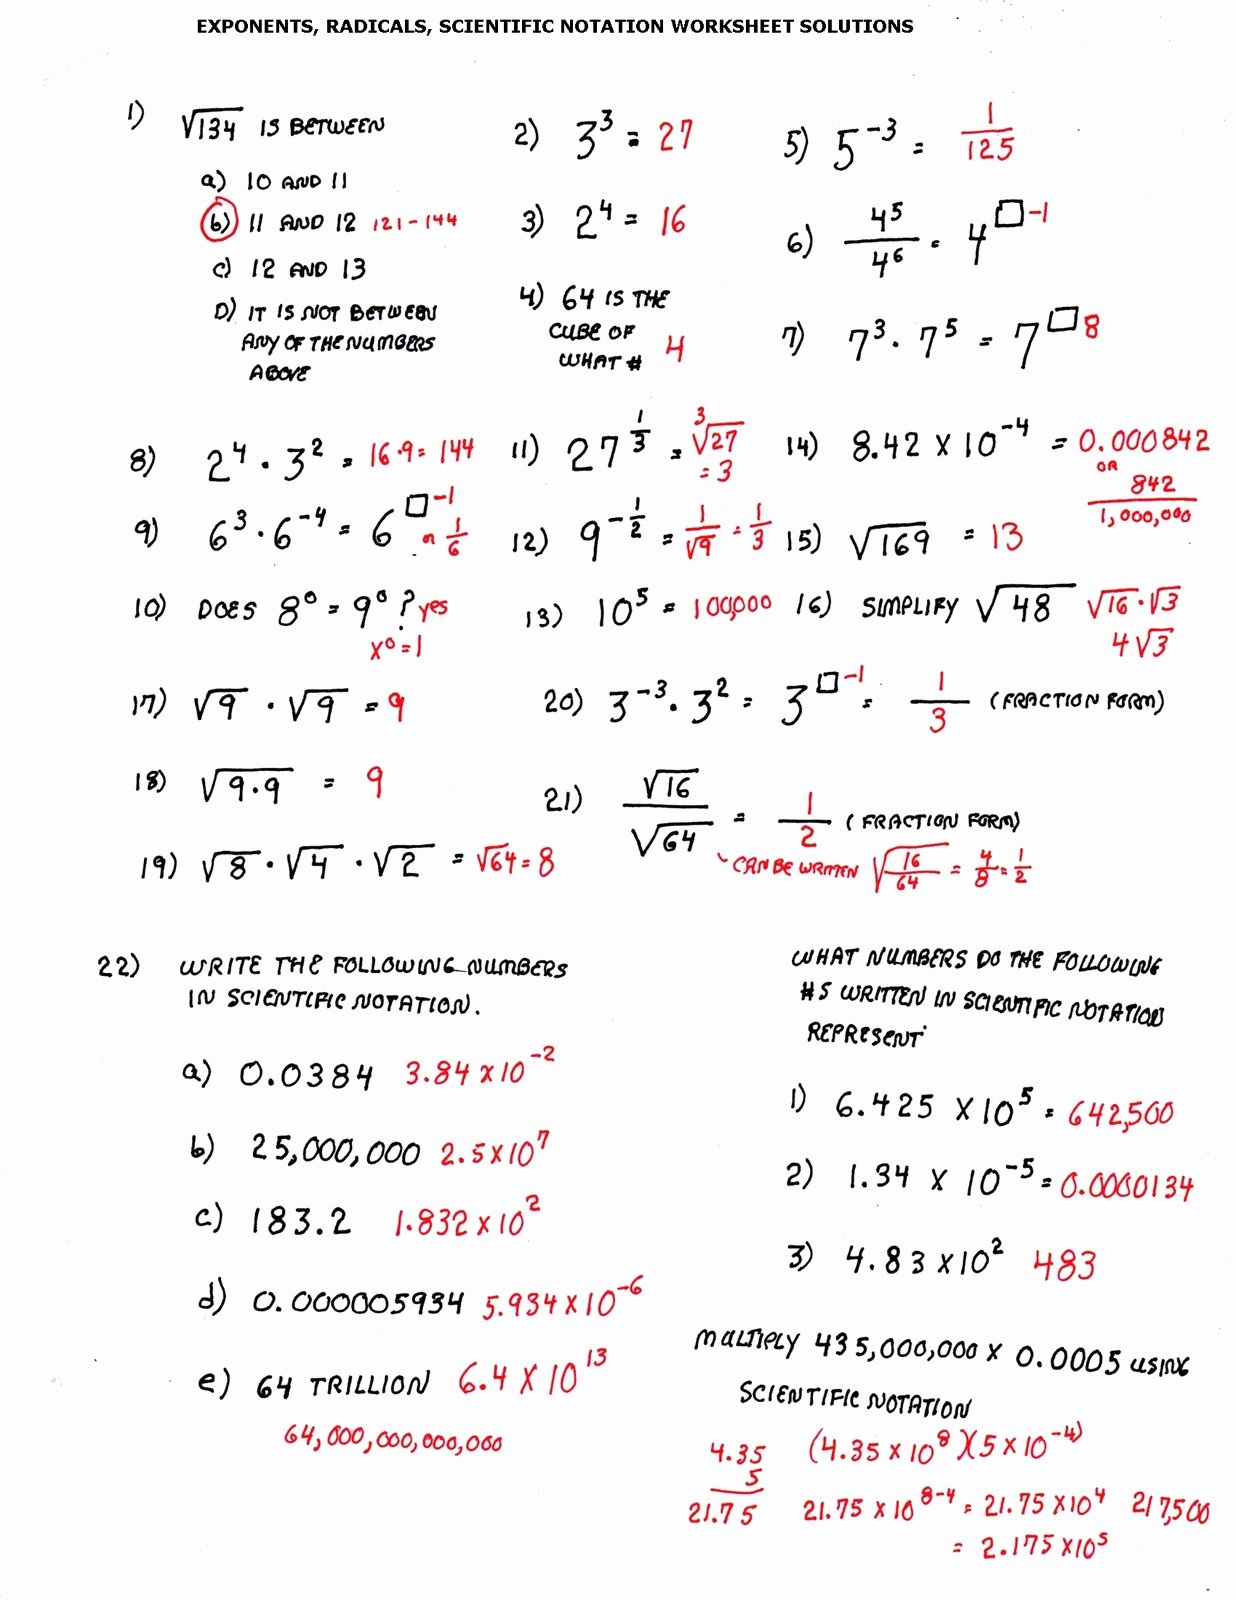 EXPONENTS, RADICALS, SCIENTIFIC NOTATION WORKSHEET SOLUTIONS
1) √134 IS BETWEEN
a) 10 AND 11
b) 11 AND 12 121-144
c) 12 AND 13
D) IT IS NOT BETWEEN
ANY OF THE NUMBERS
ABOVE
2) 3³ = 27
3) 2⁴ = 16
4) 64 IS THE
CUBE OF
WHAT # 4
5) 5⁻³ = 1/125
6) 4⁵/4⁶ = 4^□ -1
7) 7³ · 7⁵ = 7^□ 8
8) 2⁴ · 3² = 16·9 = 144
9) 6³ · 6⁻⁴ = 6^□ -1
or 1/6
10) DOES 8⁰ = 9⁰ ? yes
x⁰ = 1
11) 27^(1/3) = ³√27
= 3
12) 9^(-1/2) = 1/√9 = 1/3
13) 10⁵ = 100,000
14) 8.42 x 10⁻⁴ = 0.000842
OR
842/1,000,000
15) √169 = 13
16) SIMPLIFY √48 √16 · √3
4√3
17) √9 · √9 = 9
18) √9·9 = 9
19) √8 · √4 · √2 = √64 = 8
20) 3⁻³ · 3² = 3^□ -1 = 1/3 (FRACTION FORM)
21) √16/√64 = 1/2 (FRACTION FORM)
CAN BE WRITTEN √16/64 = 4/8 = 1/2
22) WRITE THE FOLLOWING NUMBERS
IN SCIENTIFIC NOTATION.
a) 0.0384 3.84 x 10⁻²
b) 25,000,000 2.5 x 10⁷
c) 183.2 1.832 x 10²
d) 0.000005934 5.934 x 10⁻⁶
e) 64 TRILLION 6.4 X 10¹³
64,000,000,000,000
WHAT NUMBERS DO THE FOLLOWING
#S WRITTEN IN SCIENTIFIC NOTATION
REPRESENT
1) 6.425 X 10⁵ = 642,500
2) 1.34 X 10⁻⁵ = 0.0000134
3) 4.83 x 10² 483
MULTIPLY 435,000,000 x 0.0005 USING
SCIENTIFIC NOTATION
4.35
5
21.75
(4.35 x 10⁸)(5 x 10⁻⁴)
21.75 x 10⁸⁻⁴ = 21.75 x 10⁴ 217,500
= 2.175 x 10⁵